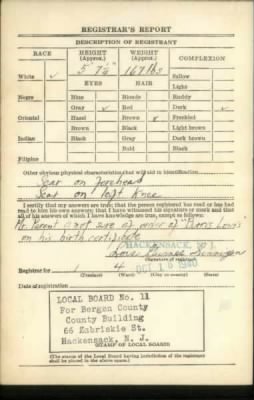 REGISTRAR'S REPORT
DESCRIPTION OF REGISTRANT
RACE HEIGHT (Approx.) WEIGHT (Approx.) COMPLEXION
5' 7½" 167 lbs Sallow
White ✓ EYES HAIR Light
Negro Blue Blonde Ruddy
Gray ✓ Red Dark ✓
Oriental Hazel Brown Freckled
Brown Black Light brown
Indian Black Gray Dark brown
Bald Black
Filipino
Other obvious physical characteristics that will aid in identification
Scar on forehead
Scar on left knee
I certify that my answers are true; that the person registered has read or has had read to him his own answers; that I have witnessed his signature or mark and that all of his answers of which I have knowledge are true, except as follows:
Mr. Parent is not sure of order of "Louis"
on his birth certificate
HACKENSACK, N. J.
(Signature of registrar)
Registrar for 4
(Precinct) (Ward) (City or county) (State)
OCT 16 1940
LOCAL BOARD No. 11
For Bergen County
County Building
66 Zabriskie St.
Hackensack, N. J.
(STAMP OF LOCAL BOARD)
(The stamp of the Local Board having jurisdiction of the registrant shall be placed in the above space.)